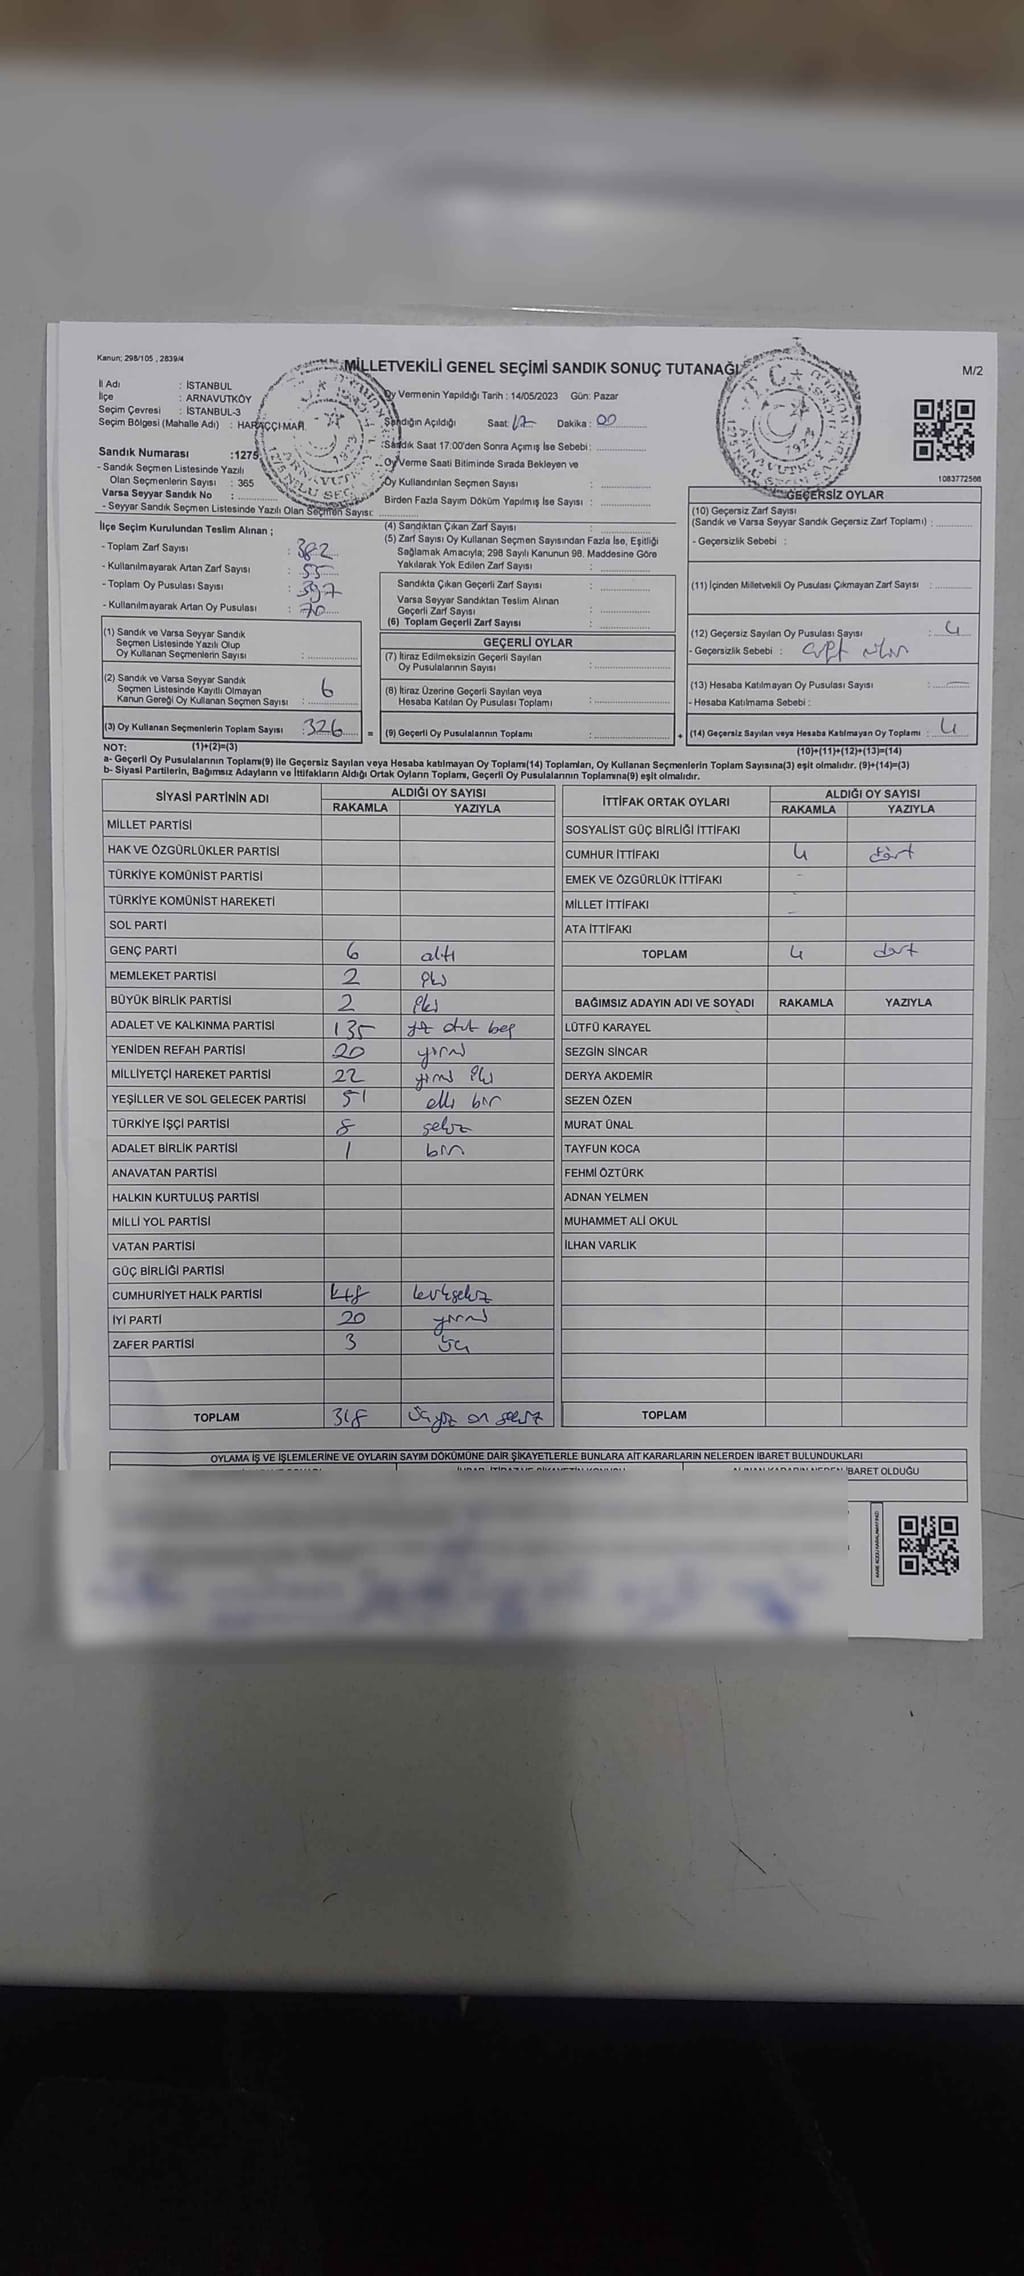 Kanun; 298/105 , 2839/4
MİLLETVEKİLİ GENEL SEÇİMİ SANDIK SONUÇ TUTANAĞI
M/2
İl Adı : İSTANBUL
İlçe : ARNAVUTKÖY
Seçim Çevresi : İSTANBUL-3
Seçim Bölgesi (Mahalle Adı) : HARAÇÇI MAH.
Oy Vermenin Yapıldığı Tarih : 14/05/2023 Gün: Pazar
Sandığın Açıldığı Saat: 17 Dakika : 00
Sandık Saat 17:00'den Sonra Açımış İse Sebebi :
Oy Verme Saati Bitiminde Sırada Bekleyen ve
Oy Kullandırılan Seçmen Sayısı :
Birden Fazla Sayım Döküm Yapılmış İse Sayısı :
Sandık Numarası :1275
- Sandık Seçmen Listesinde Yazılı
Olan Seçmenlerin Sayısı : 365
Varsa Seyyar Sandık No :
- Seyyar Sandık Seçmen Listesinde Yazılı Olan Seçmen Sayısı:
1083772566
İlçe Seçim Kurulundan Teslim Alınan ;
- Toplam Zarf Sayısı : 382
- Kullanılmayarak Artan Zarf Sayısı : 55
- Toplam Oy Pusulası Sayısı : 397
- Kullanılmayarak Artan Oy Pusulası : 70
(1) Sandık ve Varsa Seyyar Sandık
Seçmen Listesinde Yazılı Olup
Oy Kullanan Seçmenlerin Sayısı :
(2) Sandık ve Varsa Seyyar Sandık
Seçmen Listesinde Kayıtlı Olmayan
Kanun Gereği Oy Kullanan Seçmen Sayısı : 6
(3) Oy Kullanan Seçmenlerin Toplam Sayısı : 326
(4) Sandıktan Çıkan Zarf Sayısı :
(5) Zarf Sayısı Oy Kullanan Seçmen Sayısından Fazla İse, Eşitliği
Sağlamak Amacıyla; 298 Sayılı Kanunun 98. Maddesine Göre
Yakılarak Yok Edilen Zarf Sayısı :
Sandıkta Çıkan Geçerli Zarf Sayısı :
Varsa Seyyar Sandıktan Teslim Alınan
Geçerli Zarf Sayısı :
(6) Toplam Geçerli Zarf Sayısı :
GEÇERLİ OYLAR
(7) İtiraz Edilmeksizin Geçerli Sayılan
Oy Pusulalarının Sayısı :
(8) İtiraz Üzerine Geçerli Sayılan veya
Hesaba Katılan Oy Pusulası Toplamı :
= (9) Geçerli Oy Pusulalarının Toplamı :
GEÇERSİZ OYLAR
(10) Geçersiz Zarf Sayısı
(Sandık ve Varsa Seyyar Sandık Geçersiz Zarf Toplamı) :
- Geçersizlik Sebebi :
(11) İçinden Milletvekili Oy Pusulası Çıkmayan Zarf Sayısı :
(12) Geçersiz Sayılan Oy Pusulası Sayısı : 4
- Geçersizlik Sebebi :
(13) Hesaba Katılmayan Oy Pusulası Sayısı : —
- Hesaba Katılmama Sebebi :
+ (14) Geçersiz Sayılan veya Hesaba Katılmayan Oy Toplamı : 4
NOT: (1)+(2)=(3)
(10)+(11)+(12)+(13)=(14)
a- Geçerli Oy Pusulalarının Toplam(9) ile Geçersiz Sayılan veya Hesaba katılmayan Oy Toplam(14) Toplamları, Oy Kullanan Seçmenlerin Toplam Sayısına(3) eşit olmalıdır. (9)+(14)=(3)
b- Siyasi Partilerin, Bağımsız Adayların ve İttifakların Aldığı Ortak Oyların Toplamı, Geçerli Oy Pusulalarının Toplamına(9) eşit olmalıdır.
SİYASİ PARTİNİN ADI ALDIĞI OY SAYISI
RAKAMLA YAZIYLA
MİLLET PARTİSİ
HAK VE ÖZGÜRLÜKLER PARTİSİ
TÜRKİYE KOMÜNİST PARTİSİ
TÜRKİYE KOMÜNİST HAREKETİ
SOL PARTİ
GENÇ PARTİ 6 altı
MEMLEKET PARTİSİ 2 iki
BÜYÜK BİRLİK PARTİSİ 2 iki
ADALET VE KALKINMA PARTİSİ 135 yüz otuz beş
YENİDEN REFAH PARTİSİ 20 yirmi
MİLLİYETÇİ HAREKET PARTİSİ 22 yirmi iki
YEŞİLLER VE SOL GELECEK PARTİSİ 51 elli bir
TÜRKİYE İŞÇİ PARTİSİ 8 sekiz
ADALET BİRLİK PARTİSİ 1 bir
ANAVATAN PARTİSİ
HALKIN KURTULUŞ PARTİSİ
MİLLİ YOL PARTİSİ
VATAN PARTİSİ
GÜÇ BİRLİĞİ PARTİSİ
CUMHURİYET HALK PARTİSİ 48 kırksekiz
İYİ PARTİ 20 yirmi
ZAFER PARTİSİ 3 üç
TOPLAM 318 üçyüz on sekiz
İTTİFAK ORTAK OYLARI ALDIĞI OY SAYISI
RAKAMLA YAZIYLA
SOSYALİST GÜÇ BİRLİĞİ İTTİFAKI
CUMHUR İTTİFAKI 4 dört
EMEK VE ÖZGÜRLÜK İTTİFAKI -
MİLLET İTTİFAKI -
ATA İTTİFAKI
TOPLAM 4 dört
BAĞIMSIZ ADAYIN ADI VE SOYADI RAKAMLA YAZIYLA
LÜTFÜ KARAYEL
SEZGİN SİNCAR
DERYA AKDEMİR
SEZEN ÖZEN
MURAT ÜNAL
TAYFUN KOCA
FEHMİ ÖZTÜRK
ADNAN YELMEN
MUHAMMET ALİ OKUL
İLHAN VARLIK
TOPLAM
OYLAMA İŞ VE İŞLEMLERİNE VE OYLARIN SAYIM DÖKÜMÜNE DAİR ŞİKAYETLERLE BUNLARA AİT KARARLARIN NELERDEN İBARET BULUNDUKLARI
İBARET OLDUĞU